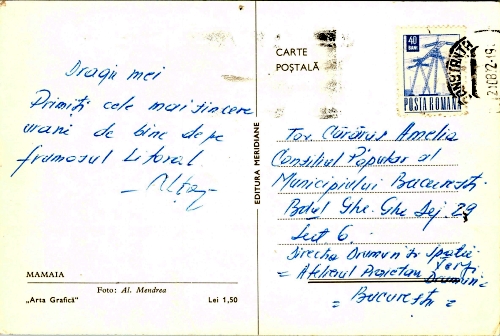 Dragii mei
Primiți cele mai sincere
urări de bine de pe
frumosul Litoral
MAMAIA
Foto: Al. Mendrea
„Arta Grafică"
Lei 1,50
EDITURA MERIDIANE
CARTE
POȘTALĂ
40
BANI
POSTA ROMANA
CONSTANTA
Tov. Amelia
Consiliul Popular al
Municipiului București
Bdul Ghe. Ghe Dej 29
Sect 6
Direcția Drumuri și Spații
Verzi
= Atelierul Proiectare Drumuri =
= București =